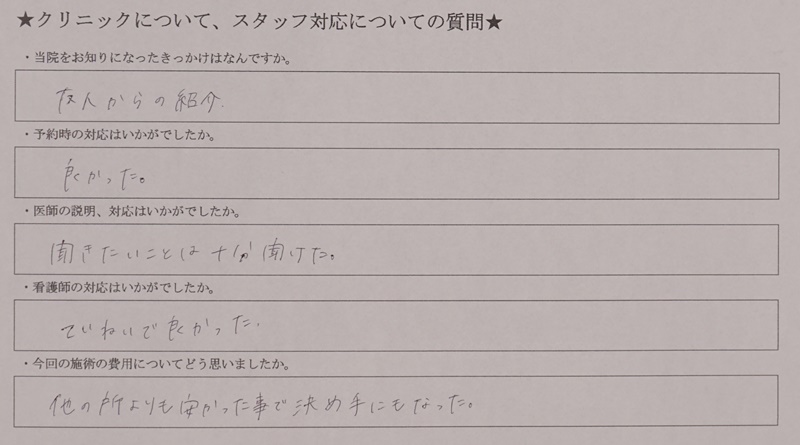 ★クリニックについて、スタッフ対応についての質問★
・当院をお知りになったきっかけはなんですか。
友人からの紹介.
・予約時の対応はいかがでしたか。
良かった。
・医師の説明、対応はいかがでしたか。
聞きたいことは十分聞けた。
・看護師の対応はいかがでしたか。
ていねいで良かった.
・今回の施術の費用についてどう思いましたか。
他の所よりも安かった事で決め手にもなった。